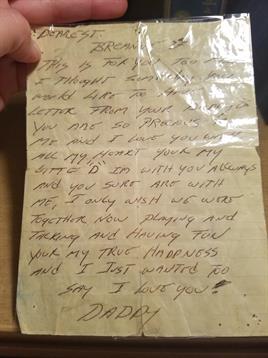 DEAREST
THIS IS FOR YOU TOO
I THOUGHT
WOULD LIKE TO
LETTER FROM YOUR
YOU ARE SO PRECIOUS
ME AND I LOVE YOU WITH
ALL MY HEART YOUR MY
"D" IM WITH YOU ALLWAYS
AND YOU SURE ARE WITH
ME, I ONLY WISH WE WERE
TOGETHER NOW PLAYING AND
TALKING AND HAVING FUN
YOUR MY TRUE HAPPNESS
AND I JUST WANTED TOO
SAY I LOVE YOU!
DADDY